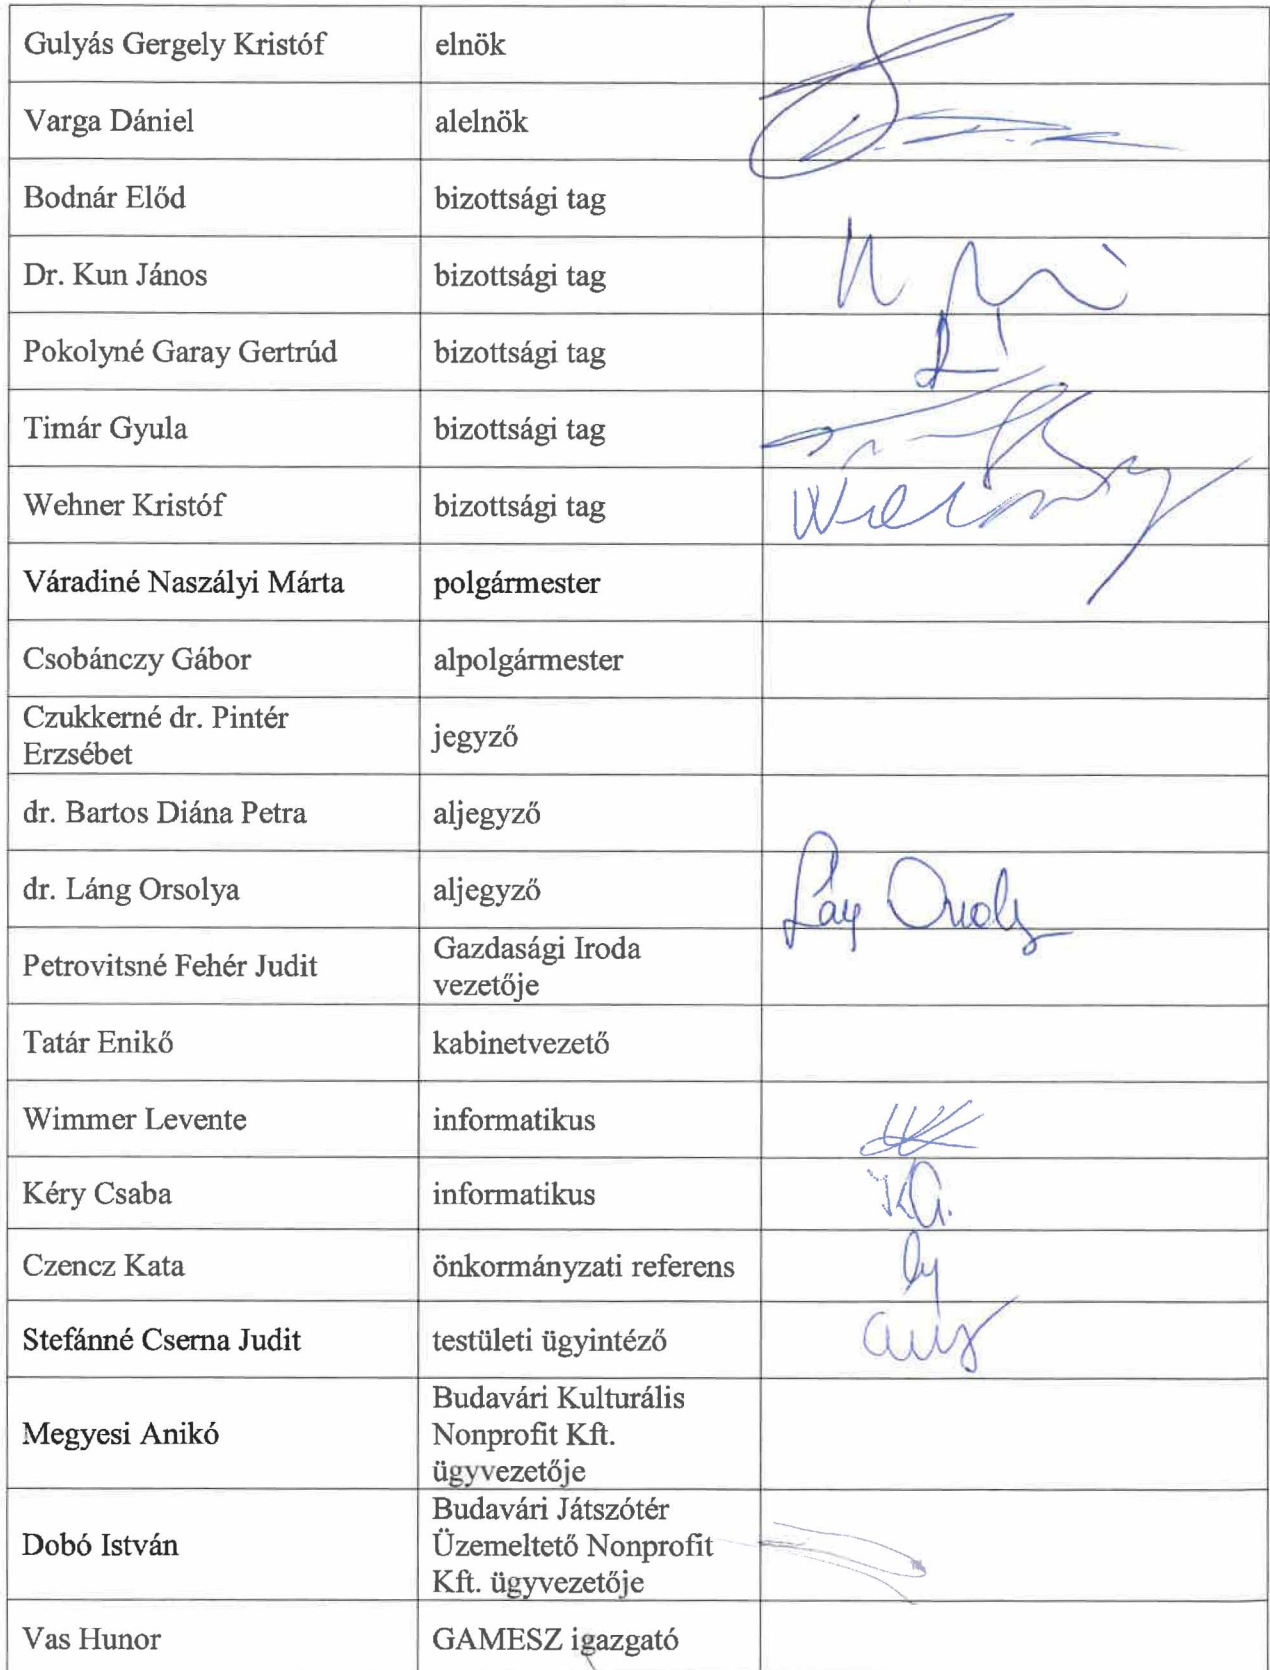 Gulyás Gergely Kristóf
elnök
Varga Dániel
alelnök
Bodnár Előd
bizottsági tag
Dr. Kun János
bizottsági tag
Pokolyné Garay Gertrúd
bizottsági tag
Timár Gyula
bizottsági tag
Wehner Kristóf
bizottsági tag
Váradiné Naszályi Márta
polgármester
Csobánczy Gábor
alpolgármester
Czukkerné dr. Pintér
Erzsébet
jegyző
dr. Bartos Diána Petra
aljegyző
dr. Láng Orsolya
aljegyző
Petrovitsné Fehér Judit
Gazdasági Iroda
vezetője
Tatár Enikő
kabinetvezető
Wimmer Levente
informatikus
Kéry Csaba
informatikus
Czencz Kata
önkormányzati referens
Stefánné Cserna Judit
testületi ügyintéző
Megyesi Anikó
Budavári Kulturális
Nonprofit Kft.
ügyvezetője
Dobó István
Budavári Játszótér
Üzemeltető Nonprofit
Kft. ügyvezetője
Vas Hunor
GAMESZ igazgató